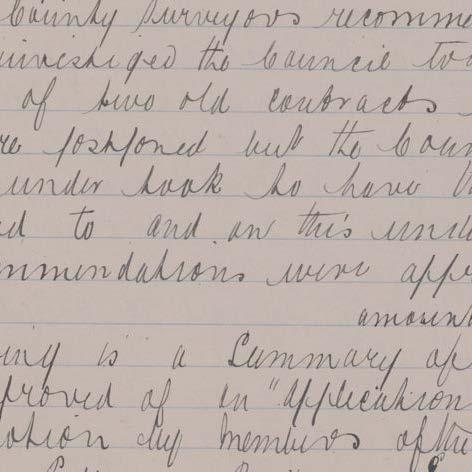 County Surveyors recomme
investiged the Council too
of two old contracts
re postponed but the Coun
under took to have t
ed to and on this unde
mmendations were appr
amount
ing is a Summary of
proved of on "Application
otion by members of the